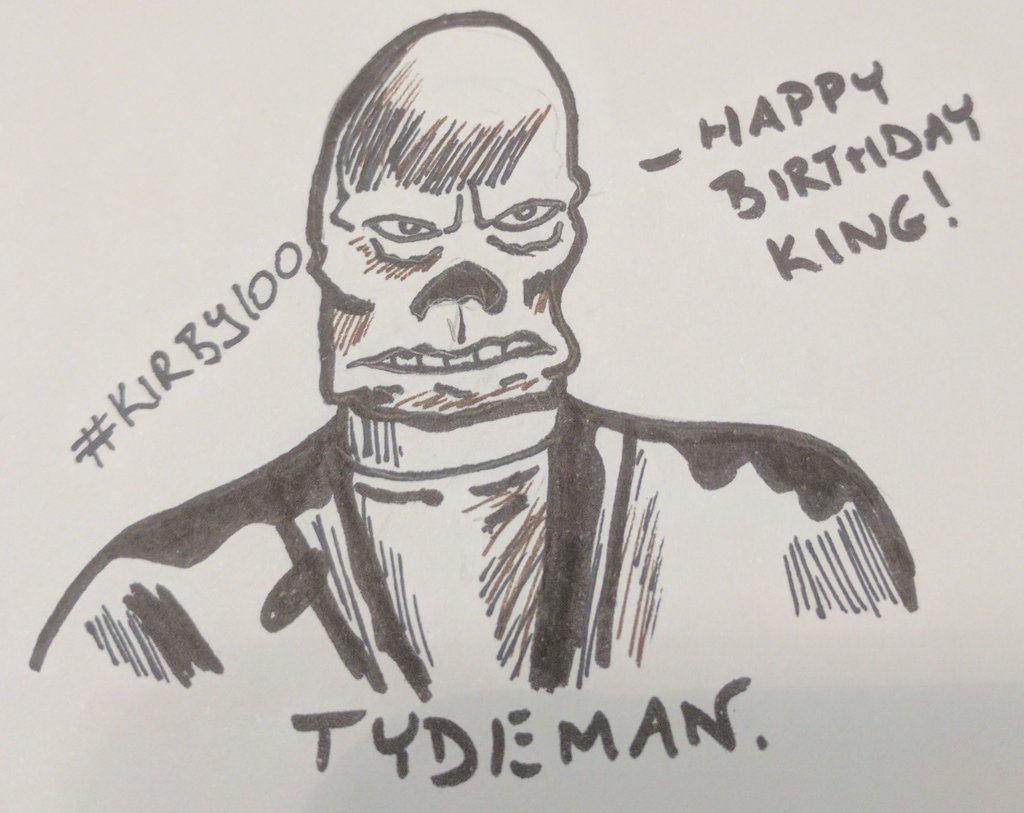 - HAPPY
BIRTHDAY
KING!
#KIRBY100
TYDEMAN.